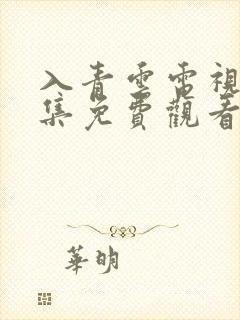 入青雲電視
集免費觀看
華明